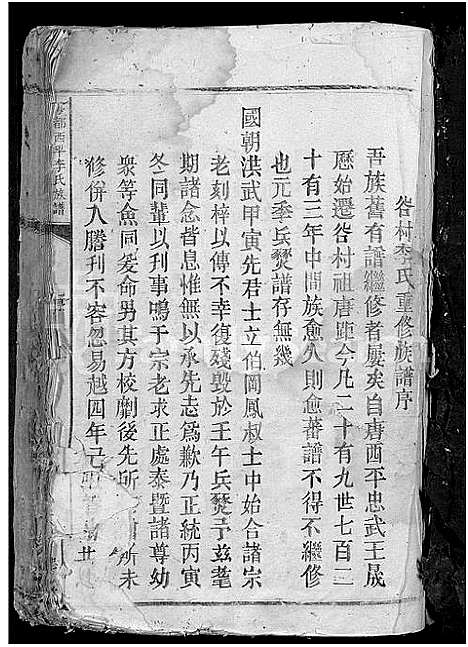 谷村李氏重修族譜序
吾族舊有譜繼修者屢矣自唐西平忠武王晟
歷始遷谷村祖唐距今凡二十有九世七百二
十有三年中間族愈久則愈蕃譜不得不繼修
也元季兵燹譜存無幾
國朝洪武甲寅先君士立伯岡鳳叔士中始合諸宗
老刻梓以傳不幸復殘毀於壬午兵燹予兹耄
期諸念皆息惟無以承先志爲歉乃正統丙寅
冬同輩以刊事鳴于宗老求正處泰暨諸尊幼
衆等僉同爰命男其方校劘後先所 所未
修併入謄刊不容忽易越四年己
都西平李氏族譜